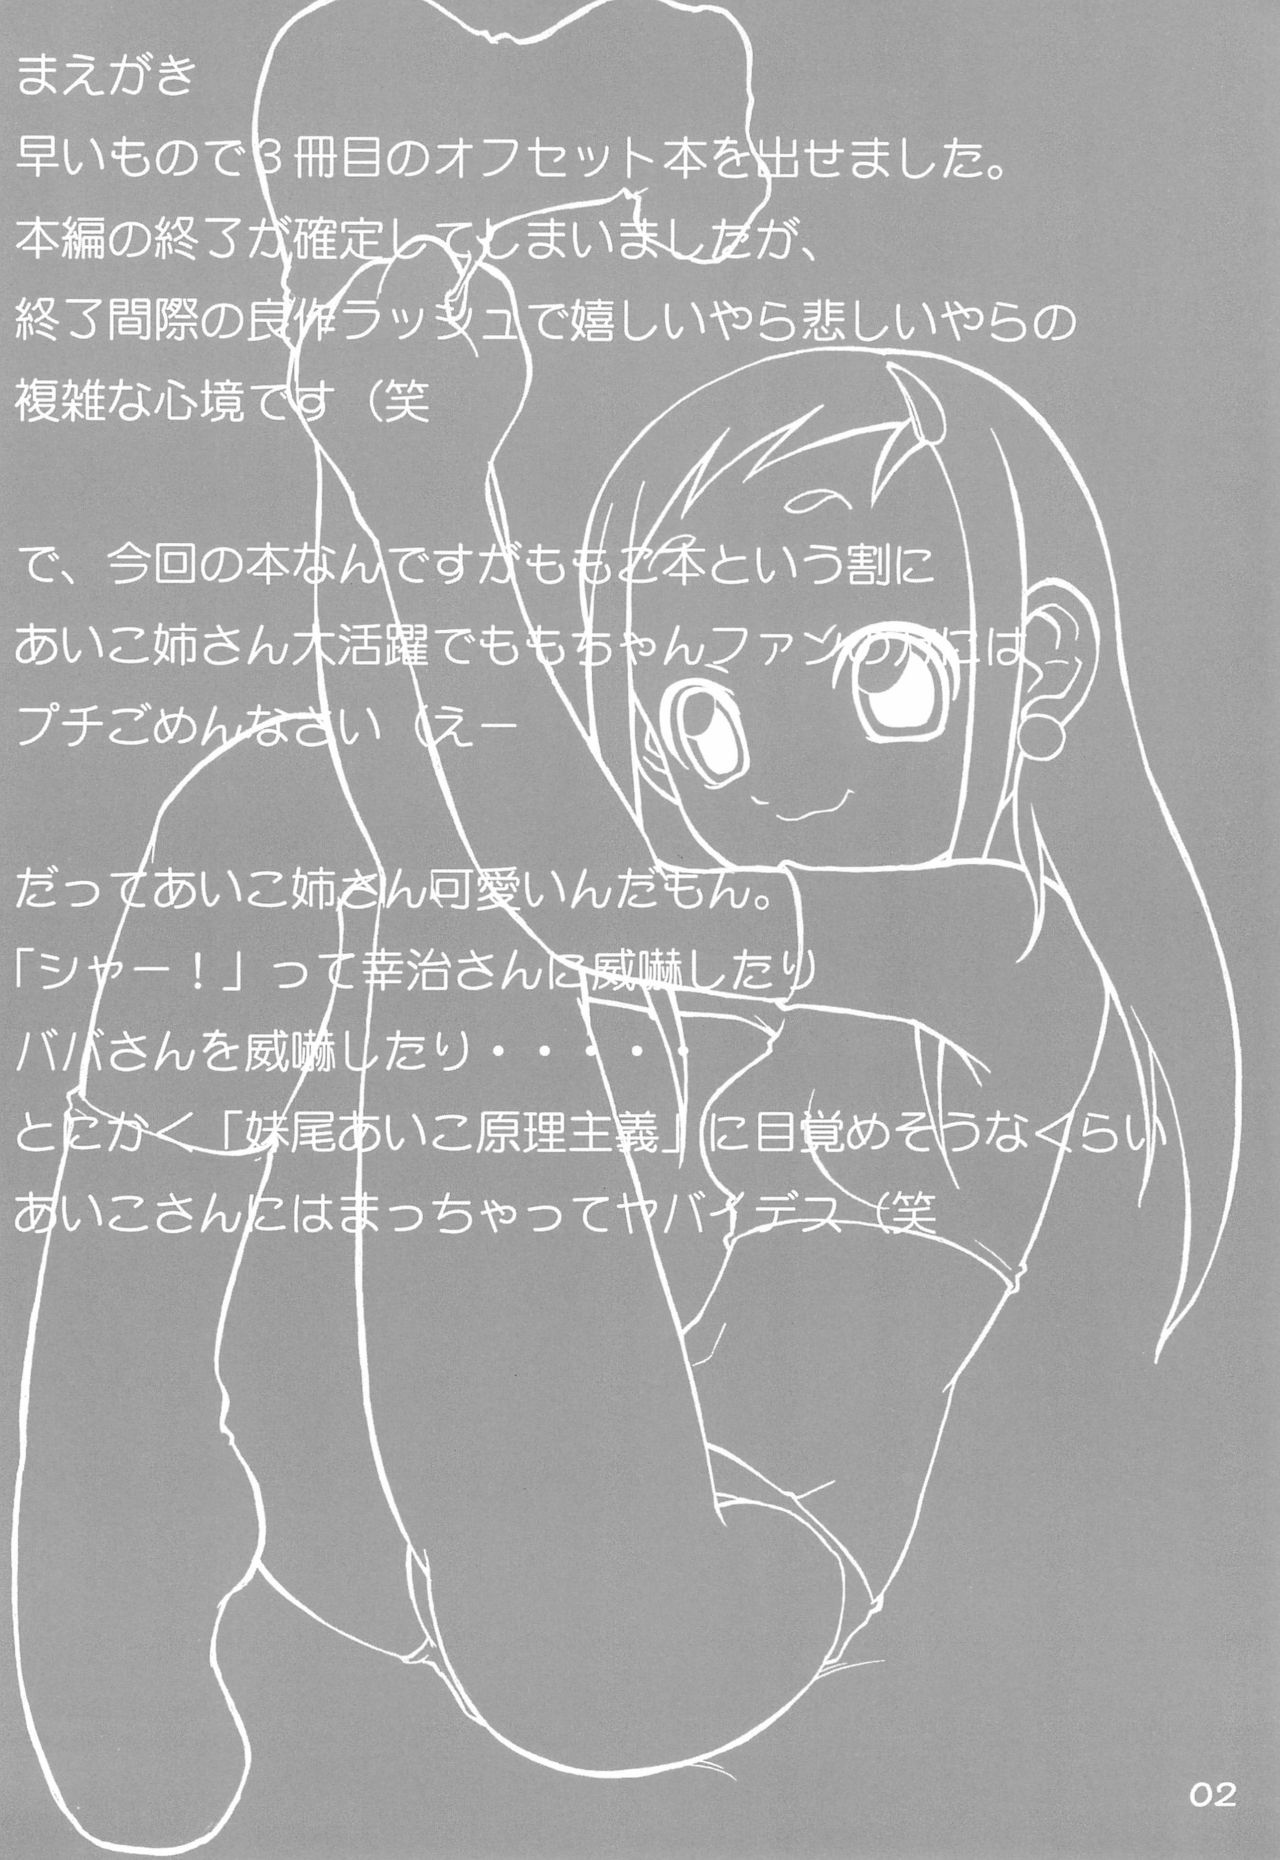 まえがき
早いもので３冊目のオフセット本を出せました。
本編の終了が確定してしまいましたが、
終了間際の良作ラッシュで嬉しいやら悲しいやらの
複雑な心境です（笑
で、今回の本なんですがももこ本という割に
あいこ姉さん大活躍でももちゃんファンの方には
プチごめんなさい（えー
だってあいこ姉さん可愛いんだもん。
「シャー！」って幸治さんに威嚇したり
ババさんを威嚇したり・・・・・
とにかく「妹尾あいこ原理主義」に目覚めそうなくらい
あいこさんにはまっちゃってヤバイデス（笑
02